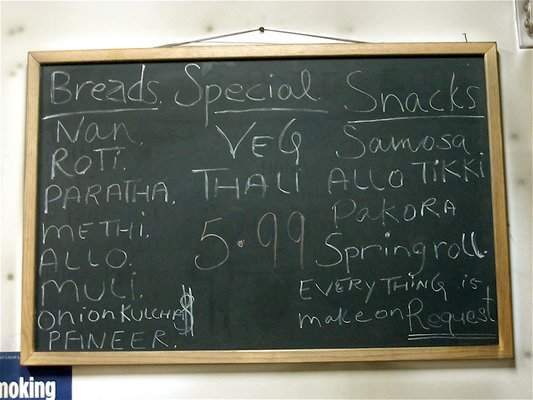 Breads
Nan.
ROTi.
PARATHA.
METHI.
ALLO.
MULI.
Onion KULCHA
PANEER.
Special
VEG
THALi
5.99
Snacks
Samosa
ALLO TiKKi
PakORA
Springroll.
EVERYTHING is
make on Request
moking